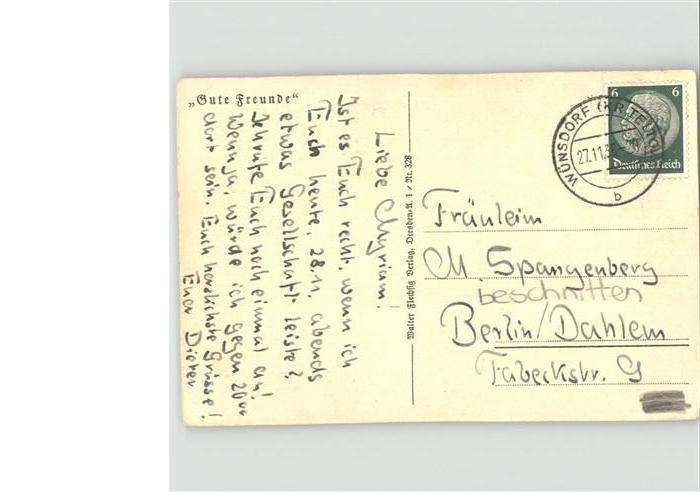 „Gute Freunde“
Liebe Myriam!
Ist es Euch recht, wenn ich
Euch heute, 28.11. abends
etwas Gesellschaft leiste?
Ich rufe Euch noch einmal an!
Wenn ja, würde ich gegen 20 Uhr
dort sein. Euch herzlichste Grüsse!
Euer Dieter
Walter Flechsig Verlag, Dresden-A. 1 / Nr. 328
6 6
Deutsches Reich
WÜNSDORF (KR. TELTOW)
27.11.
b
Fräulein
M. Spangenberg
beschnitten
Berlin/Dahlem
Fabeckstr.